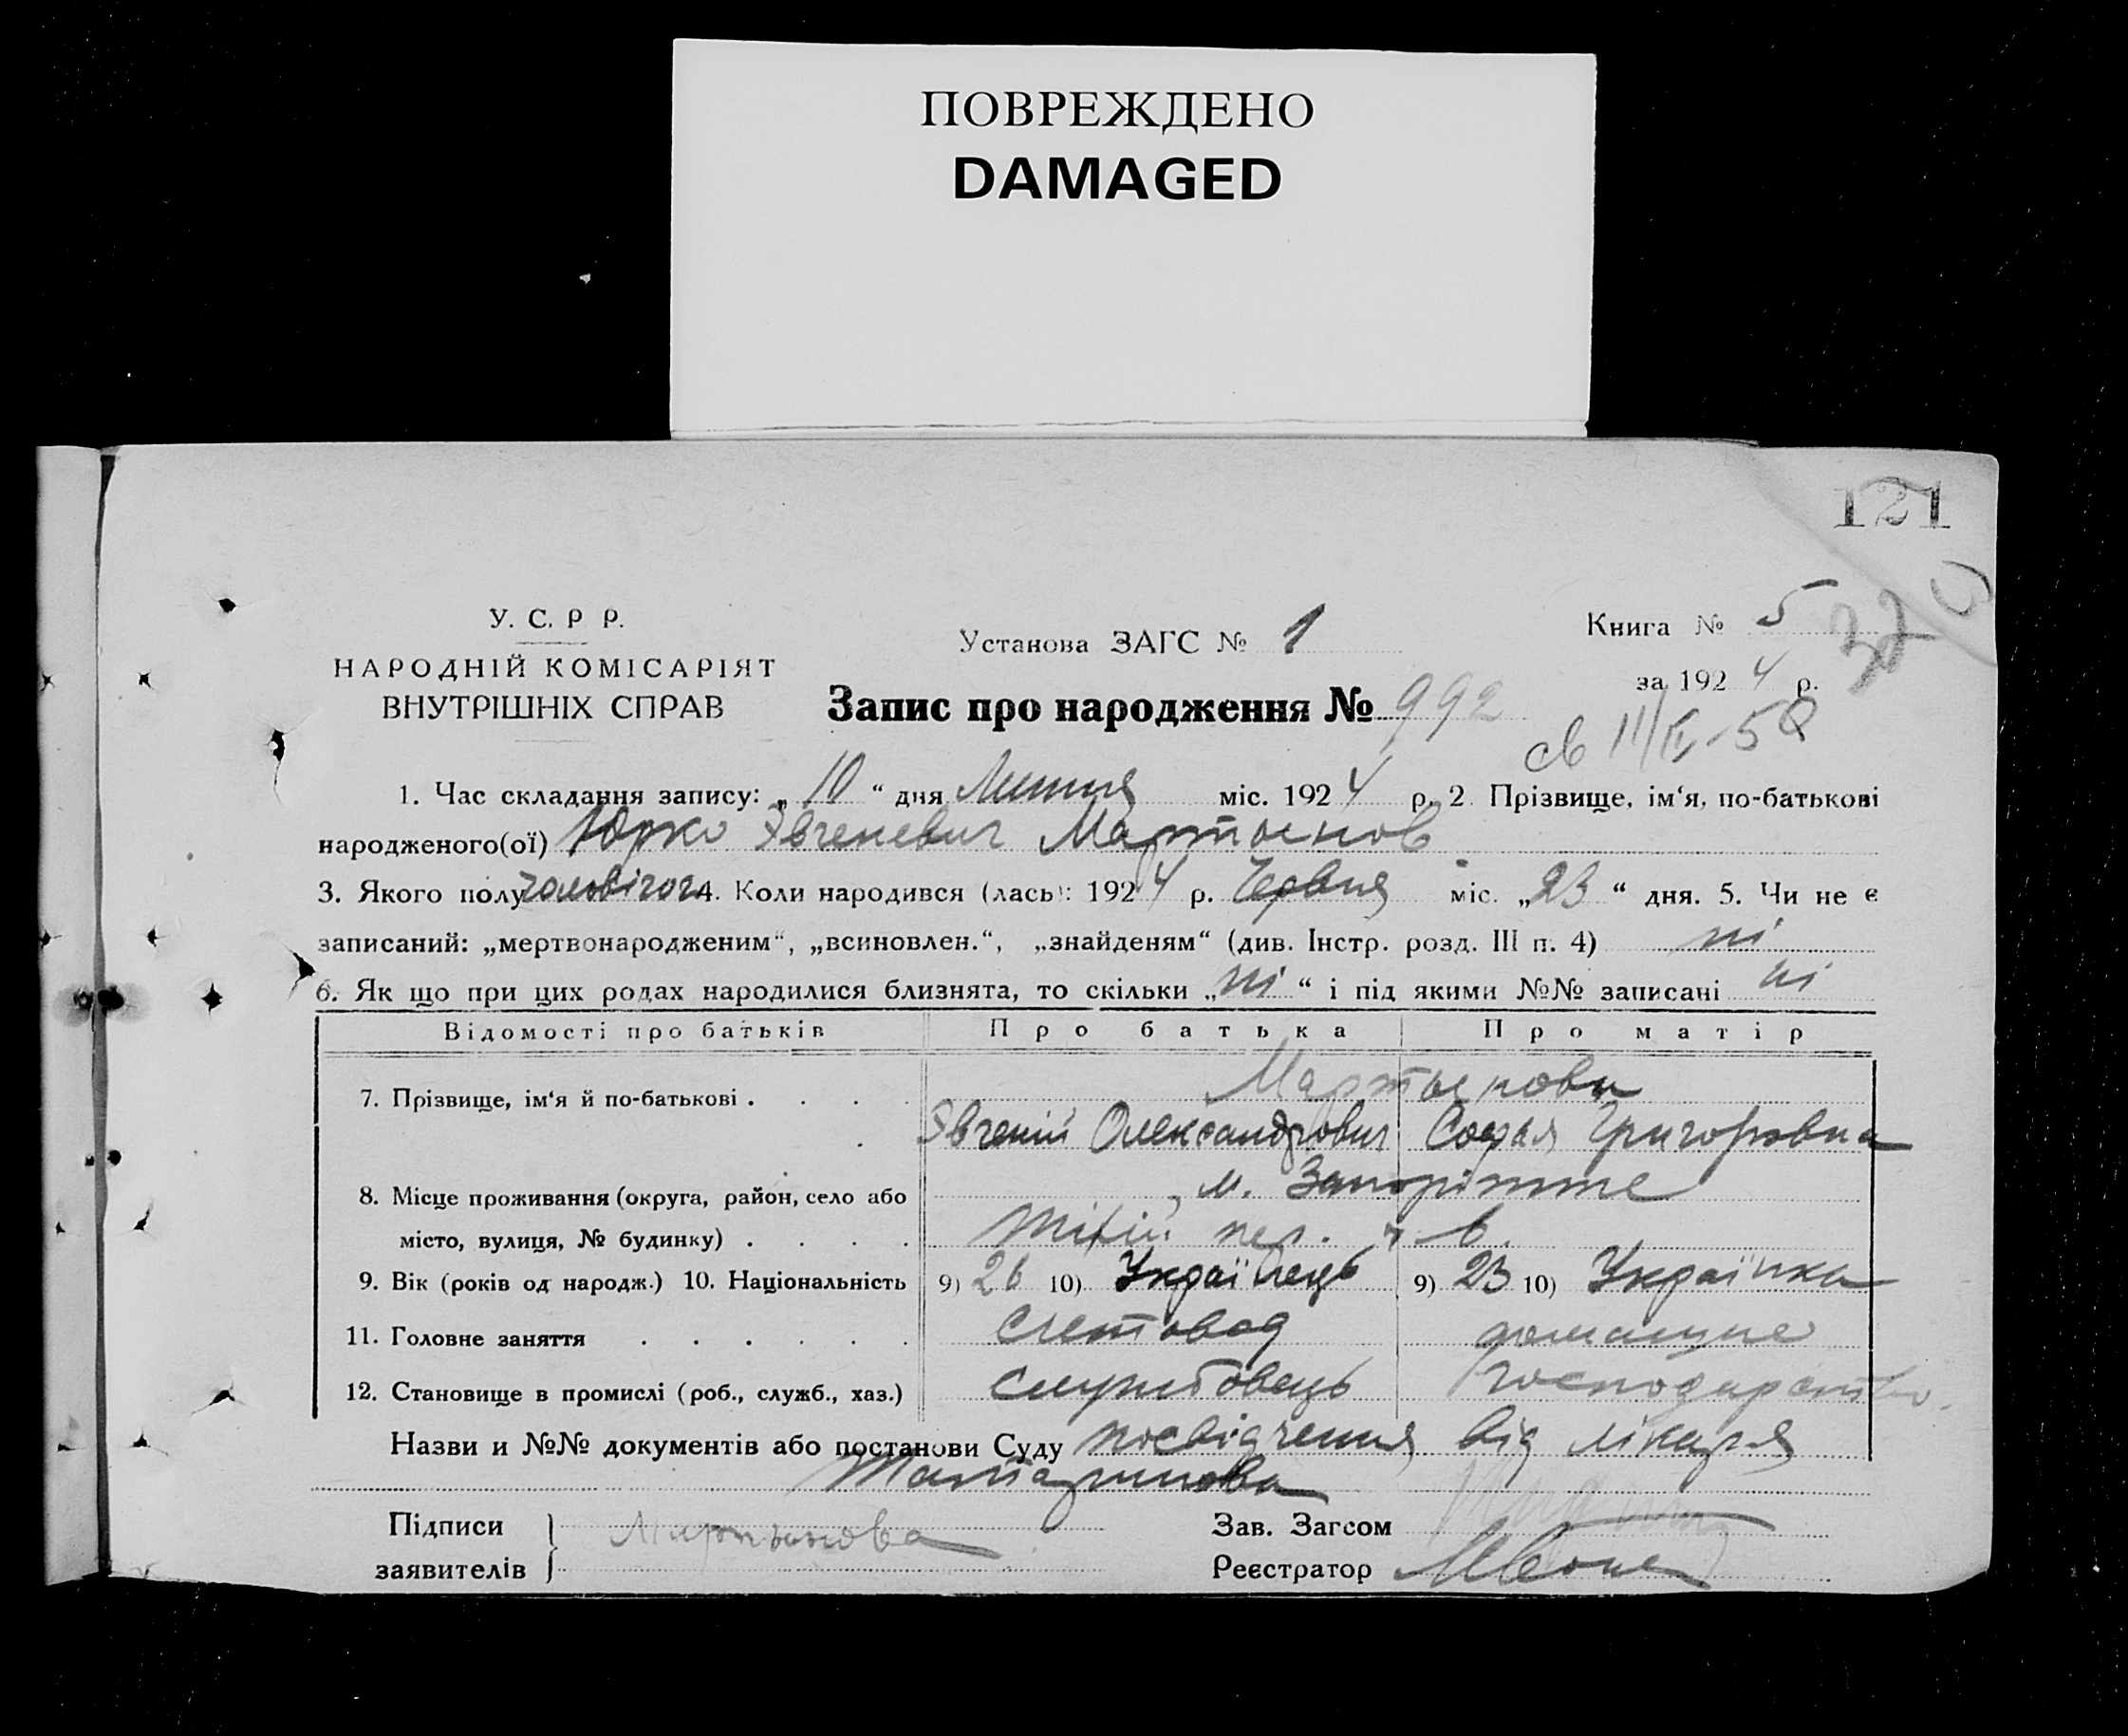 ПОВРЕЖДЕНО
DAMAGED
121
У. С. Р Р.
НАРОДНІЙ КОМІСАРІЯТ
ВНУТРІШНІХ СПРАВ
Установа ЗАГС № 1
Запис про народження № 992
Книга № 5
за 1924 р.
32
1. Час складання запису: „10“ дня Липня міс. 1924 р. 2. Прізвище, ім‘я, по-батькові
народженого(ої) Юрко Эвгеневич Мартынов
3. Якого полу чоловічого 4. Коли народився (лась): 1924 р. Червня міс. „23“ дня. 5. Чи не є
записаний: „мертвонародженим“, „всиновлен.“, „знайденям“ (див. Інстр. розд. III п. 4) ні
6. Як що при цих родах народилися близнята, то скільки „ні“ і під якими №№ записані ні
Відомості про батьків Про батька Про матір
7. Прізвище, ім‘я й по-батькові . . . . Мартынови
Эвгений Олександрович Софья Григоровна
8. Місце проживання (округа, район, село або м. Запоріжже
місто, вулиця, № будинку) . . . .
9. Вік (років од народж.) 10. Національність 9) 26 10) Українець 9) 23 10) Українка
11. Головне заняття . . . . . . Счетовод домашне
12. Становище в промислі (роб., служб., хаз.) службовець господарство.
Назви и №№ документів або постанови Суду посвідчення від лікаря
Підписи заявителів Мартынова
Зав. Загсом
Реєстратор